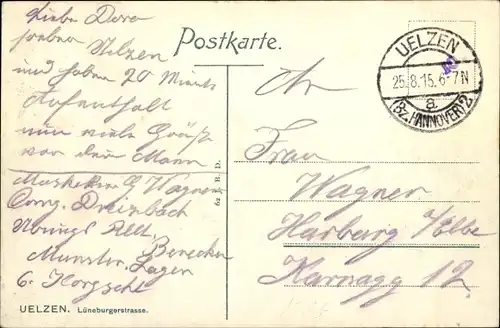 Liebe Dora
Uelzen
und haben 20 Minut
Aufenthalt
nun viele Grüße
von dein Mann
Musketier G Wagner
Comp. Dreisbach
Übungs Abt.
Munster Lager
Postkarte.
UELZEN
25.8.15.6-7N
a
(Bz. HANNOVER) 2
An
Frau
Wagner
Harburg a/Elbe
Karnapp 12.
62 R. D.
UELZEN. Lüneburgerstrasse.